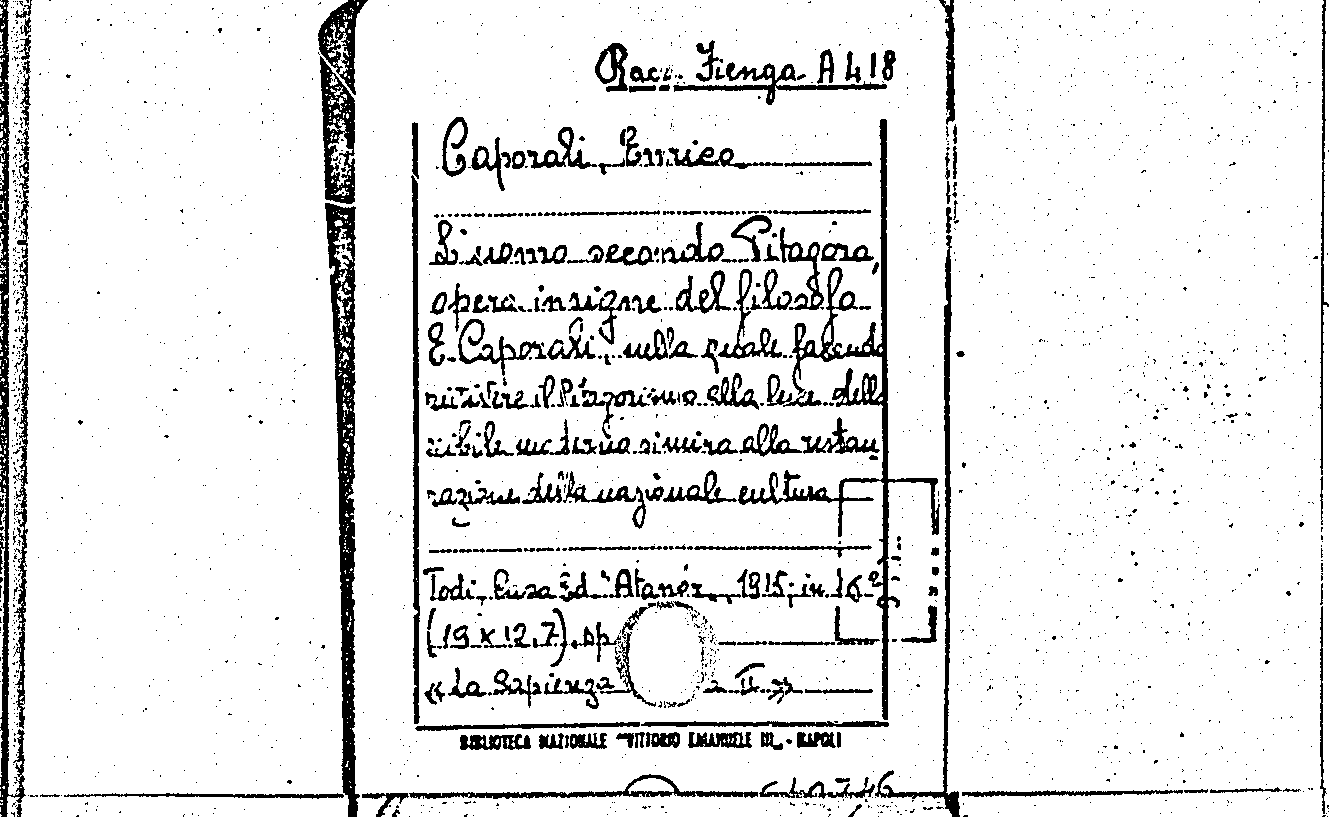 Racc. Fienga A 418
Caporali, Enrico
L'uomo secondo Pitagora,
opera insigne del filosofo
E. Caporali, nella quale facendo
rivivere il Pitagorismo alla luce dello
scibile moderno si mira alla restau
razione della nazionale cultura
Todi, Casa Ed. "Atanòr", 1915; in 16º
(19 x 12,7). pp
«La Sapienza II»
BIBLIOTECA NAZIONALE "VITTORIO EMANUELE III„ - NAPOLI